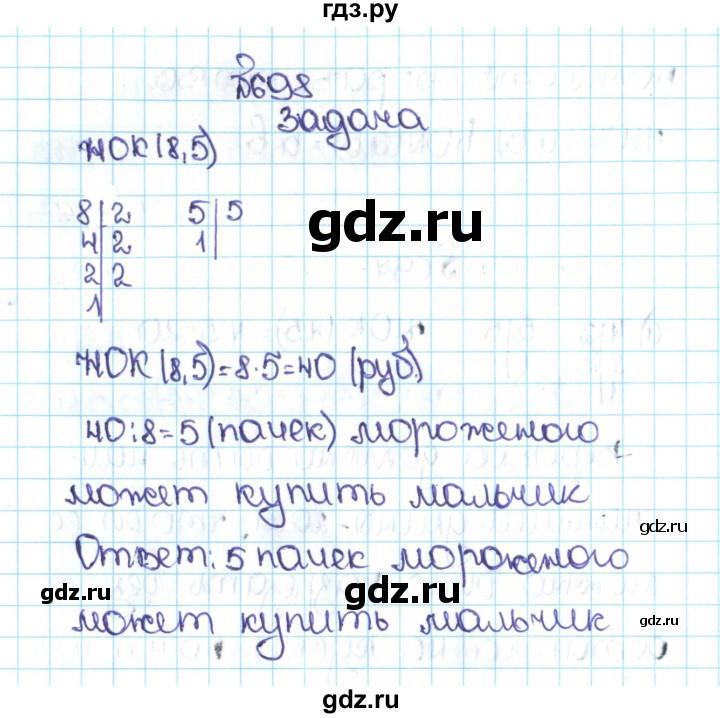 гдз.ру
№698
Задача
НОК(8,5)
8|2 5|5
4|2 1|
2|2
1|
gdz.ru
НОК(8,5)=8·5=40 (руб.)
40:8=5(пачек) мороженого
может купить мальчик
gdz.ru
Ответ: 5 пачек мороженого
gdz.ru gdz.ru gdz.ru
может купить мальчик
gdz.ru